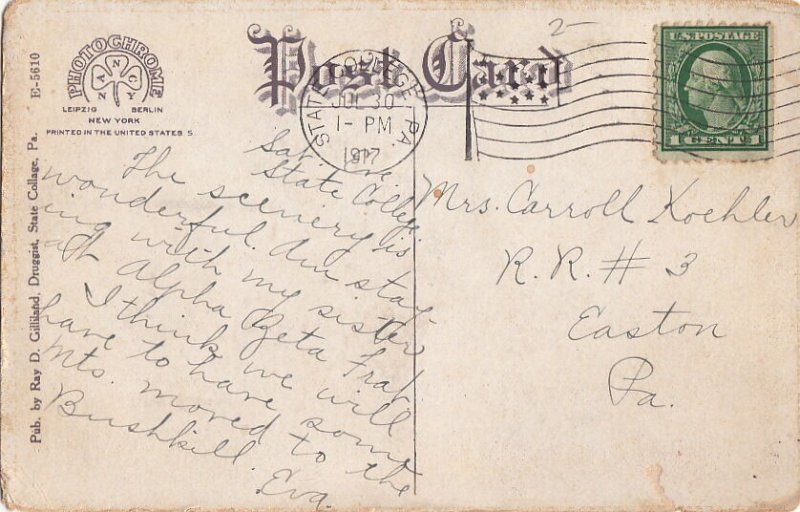 Post Card
PHOTOCHROME
NANCY
LEIPZIG BERLIN
NEW YORK
PRINTED IN THE UNITED STATES
E-5610
Pub. by Ray D. Gilliland, Druggist, State Collage, Pa.
2
STATE COLLEGE, PA.
JUL 30
1- PM
1917
U.S. POSTAGE
1 CENT 1
Sat. Eve.
State College
The scenery is
wonderful. Am stay-
ing with my sister
at Alpha Beta Frat.
I think we will
have to have some
Mts. moved to the
Bushkill.
Eva.
Mrs. Carroll Koehler
R.R. # 3
Easton
Pa.